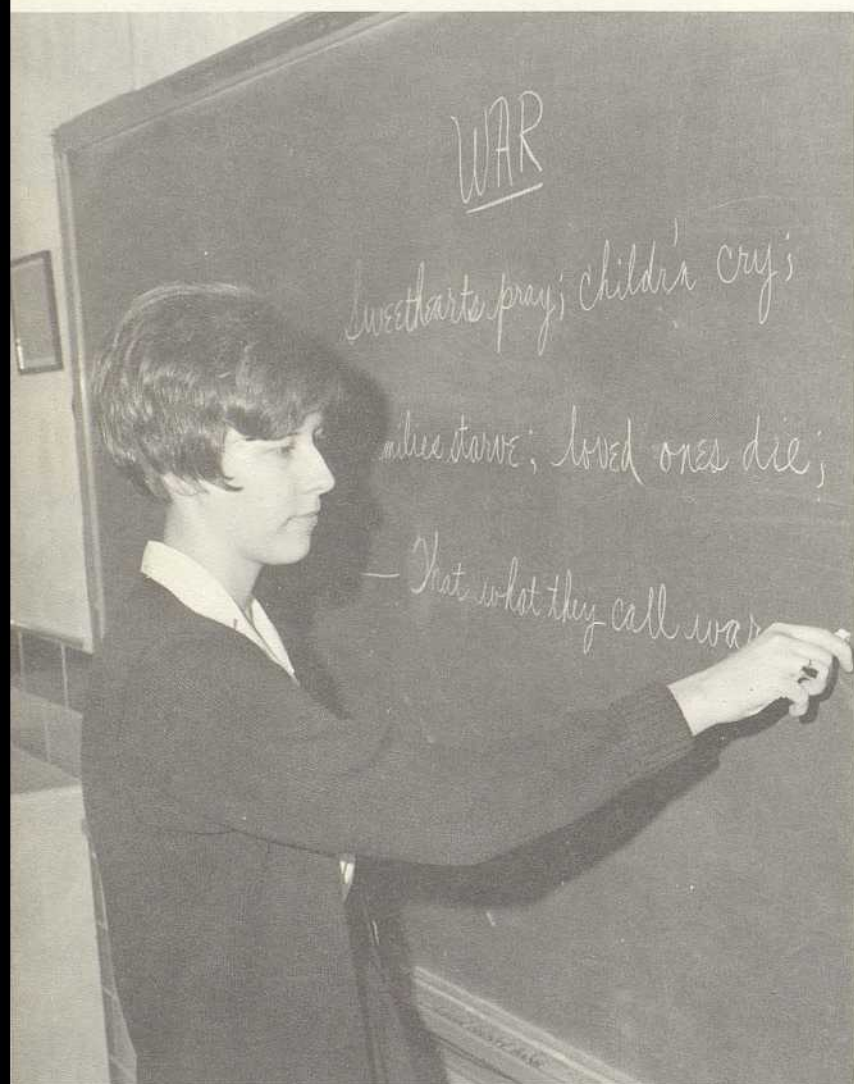 WAR
Sweethearts pray; children cry;
milies starve; loved ones die;
— That what they call war